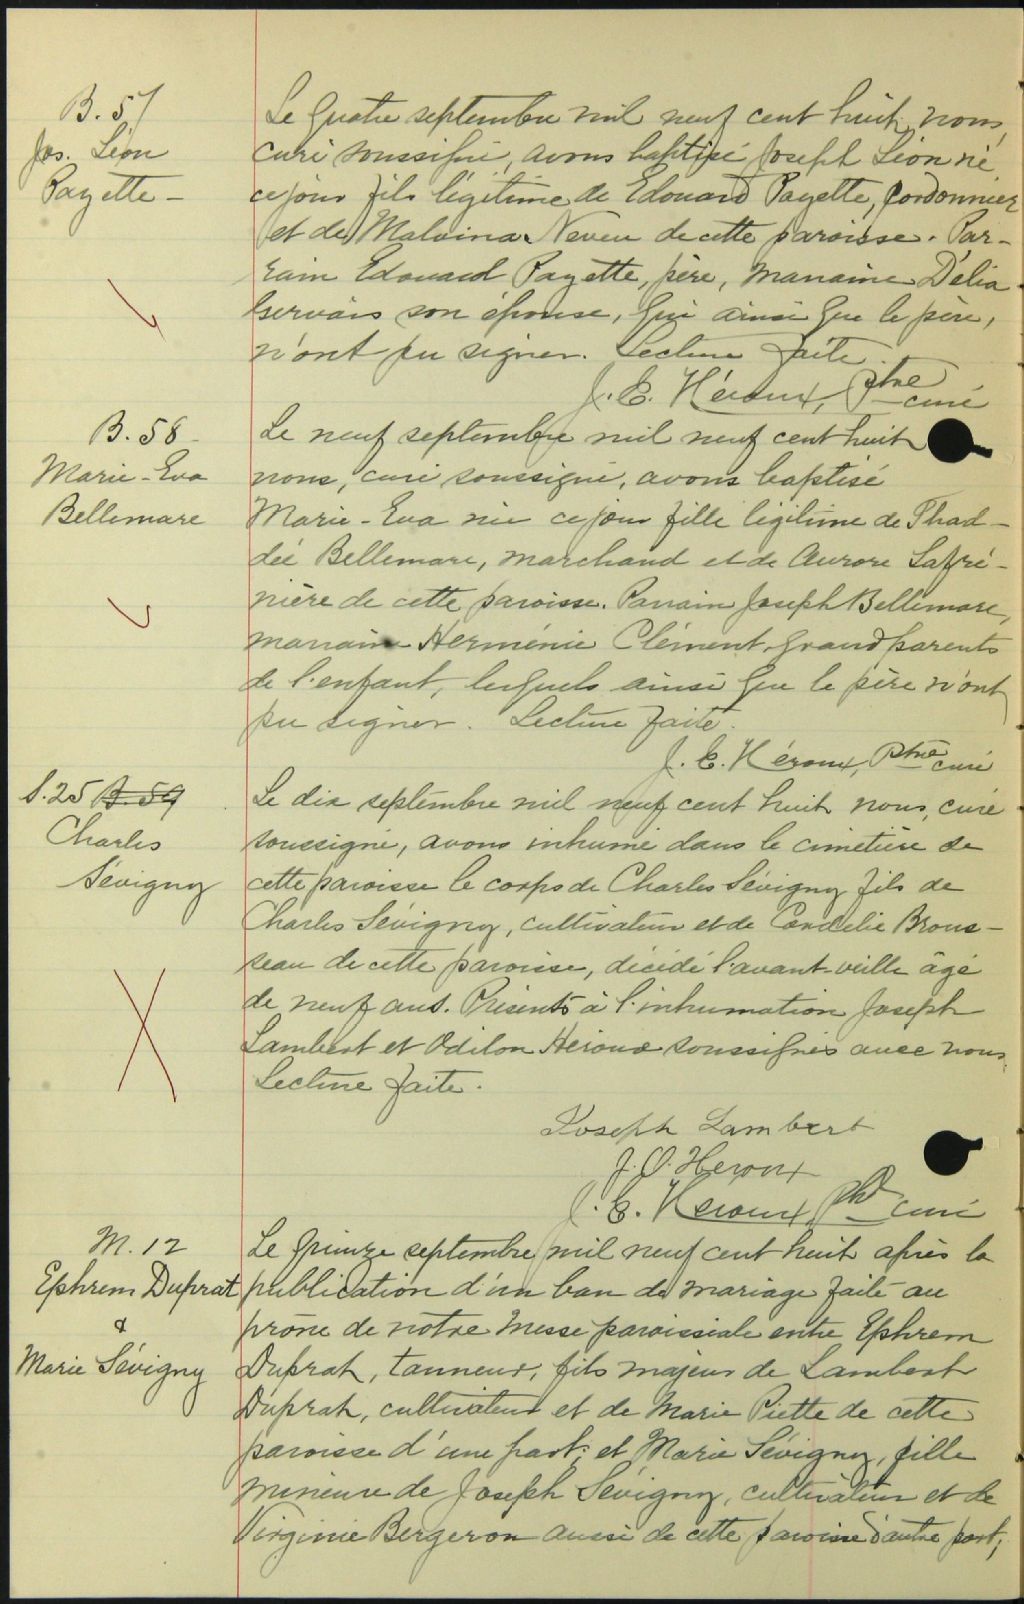 B. 57
Jos. Léon
Payette -
Le quatre septembre mil neuf cent huit, nous,
curé soussigné, avons baptisé Joseph Léon né
ce jour fils légitime de Edouard Payette, cordonnier
et de Malvina Neveu de cette paroisse. Par-
rain Edouard Payette, père, marraine Délia
Gervais son épouse, qui ainsi que le père,
n'ont pu signer. Lecture faite.
J. E. Héroux, Ptre curé
B. 58 -
Marie-Eva
Bellemare
Le neuf septembre mil neuf cent huit
nous, curé soussigné, avons baptisé
Marie-Eva née ce jour fille légitime de Thad-
dée Bellemare, marchand et de Aurore Lafré-
nière de cette paroisse. Parrain Joseph Bellemare,
marraine Herménie Clément, grand parents
de l'enfant, lesquels ainsi que le père n'ont
pu signer. Lecture faite.
J. E. Héroux, Ptre curé
S. 25 B. 59
Charles
Sévigny
Le dix septembre mil neuf cent huit nous, curé
soussigné, avons inhumé dans le cimetière de
cette paroisse le corps de Charles Sévigny fils de
Charles Sévigny, cultivateur et de Cordélie Brous-
seau de cette paroisse, décédé l'avant-veille âgé
de neuf ans. Présents à l'inhumation Joseph
Lambert et Odilon Héroux soussignés avec nous.
Lecture faite.
Joseph Lambert
J. O. Heroux
J. E. Heroux, Ptre curé
M. 12
Ephrem Duprat
&
Marie Sévigny
Le quinze septembre mil neuf cent huit après la
publication d'un ban de mariage faite au
prône de notre messe paroissiale entre Ephrem
Duprat, tanneur, fils majeur de Lambert
Duprat, cultivateur et de Marie Piette de cette
paroisse d'une part; et Marie Sévigny, fille
mineure de Joseph Sévigny, cultivateur et de
Virginie Bergeron aussi de cette paroisse d'autre part;